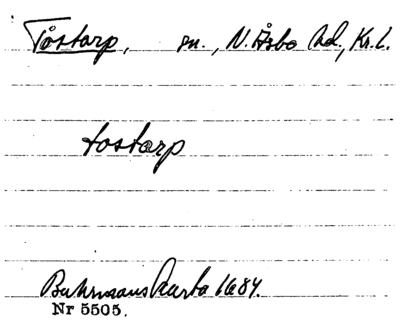 Tåstarp, sn., N. Åsbo hd., Kr. l.
tostarp
Buhrmans Karta 1684.
Nr 5505.